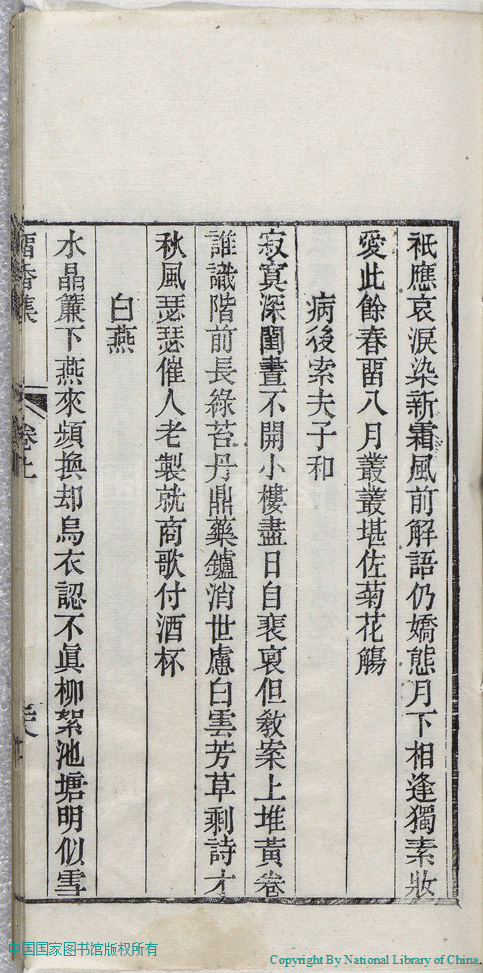 祇應哀淚染新霜風前解語仍嬌態月下相逢獨素妝
愛此餘春畱八月叢叢堪佐菊花觴
病後索夫子和
寂寞深閨晝不開小樓盡日自裴裒但敎案上堆黃卷
誰識階前長綠苔丹鼎藥鑪消世慮白雲芳草剩詩才
秋風瑟瑟催人老製就商歌付酒杯
白燕
水晶簾下燕來頻換却烏衣認不眞柳絮池塘明似雪
香集
卷七
中国国家图书馆版权所有
Copyright By National Library of China.